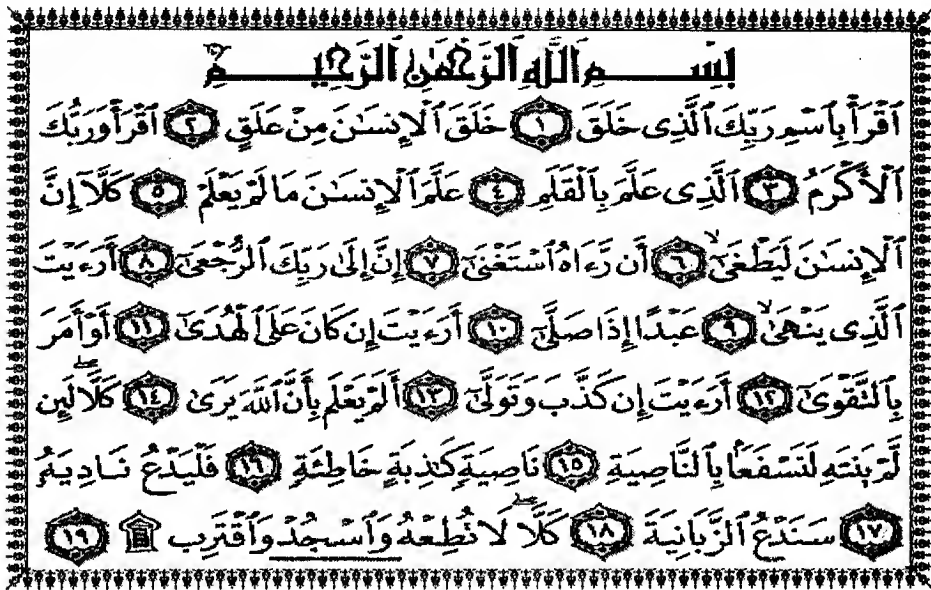 بِسْمِ ٱللَّهِ ٱلرَّحْمَٰنِ ٱلرَّحِيمِ
ٱقْرَأْ بِٱسْمِ رَبِّكَ ٱلَّذِى خَلَقَ ١ خَلَقَ ٱلْإِنسَٰنَ مِنْ عَلَقٍ ٢ ٱقْرَأْ وَرَبُّكَ
ٱلْأَكْرَمُ ٣ ٱلَّذِى عَلَّمَ بِٱلْقَلَمِ ٤ عَلَّمَ ٱلْإِنسَٰنَ مَا لَمْ يَعْلَمْ ٥ كَلَّآ إِنَّ
ٱلْإِنسَٰنَ لَيَطْغَىٰٓ ۙ ٦ أَن رَّءَاهُ ٱسْتَغْنَىٰٓ ٧ إِنَّ إِلَىٰ رَبِّكَ ٱلرُّجْعَىٰٓ ٨ أَرَءَيْتَ
ٱلَّذِى يَنْهَىٰ ۙ ٩ عَبْدًا إِذَا صَلَّىٰٓ ١٠ أَرَءَيْتَ إِن كَانَ عَلَى ٱلْهُدَىٰٓ ١١ أَوْ أَمَرَ
بِٱلتَّقْوَىٰٓ ١٢ أَرَءَيْتَ إِن كَذَّبَ وَتَوَلَّىٰٓ ١٣ أَلَمْ يَعْلَم بِأَنَّ ٱللَّهَ يَرَىٰ ١٤ كَلَّا لَئِن
لَّمْ يَنتَهِ لَنَسْفَعًۢا بِٱلنَّاصِيَةِ ١٥ نَاصِيَةٍ كَٰذِبَةٍ خَاطِئَةٍ ١٦ فَلْيَدْعُ نَادِيَهُۥ
١٧ سَنَدْعُ ٱلزَّبَانِيَةَ ١٨ كَلَّا لَا تُطِعْهُ وَٱسْجُدْ وَٱقْتَرِب ۩ ١٩